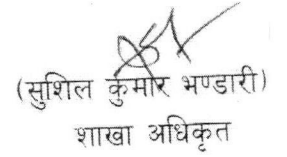 (सुशिल कुमार भण्डारी)
शाखा अधिकृत